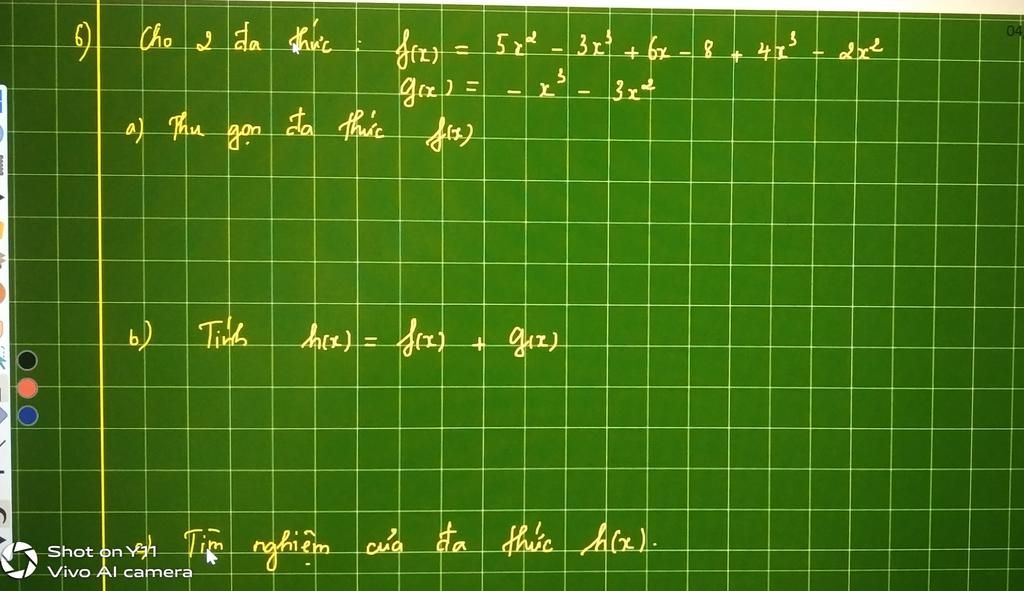 6) Cho 2 đa thức : f(x) = 5x² - 3x³ + 6x - 8 + 4x³ - 2x²
g(x) = - x³ - 3x²
a) Thu gọn đa thức f(x)
b) Tính h(x) = f(x) + g(x)
c) Tìm nghiệm của đa thức h(x).
Shot on Y11
Vivo AI camera
04